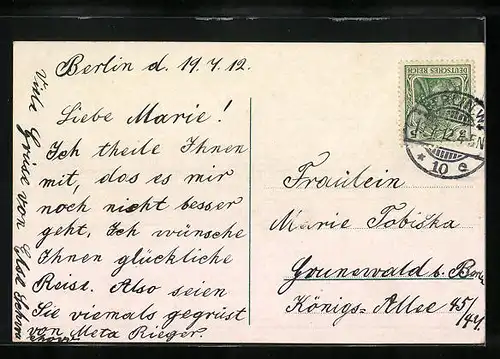 Berlin d. 19.4.12.
Liebe Marie!
Ich theile Ihnen
mit, das es mir
noch nicht besser
geht. Ich wünsche
Ihnen glückliche
Reise. Also seien
Sie viemals gegrüst
von Meta Rieger.
Viele Grüsse von Else
DEUTSCHES REICH
BERLIN W
* 10 e
Fräulein
Marie Tobiska
Grunewald b. Berlin
Königs-Allee 45/
47.